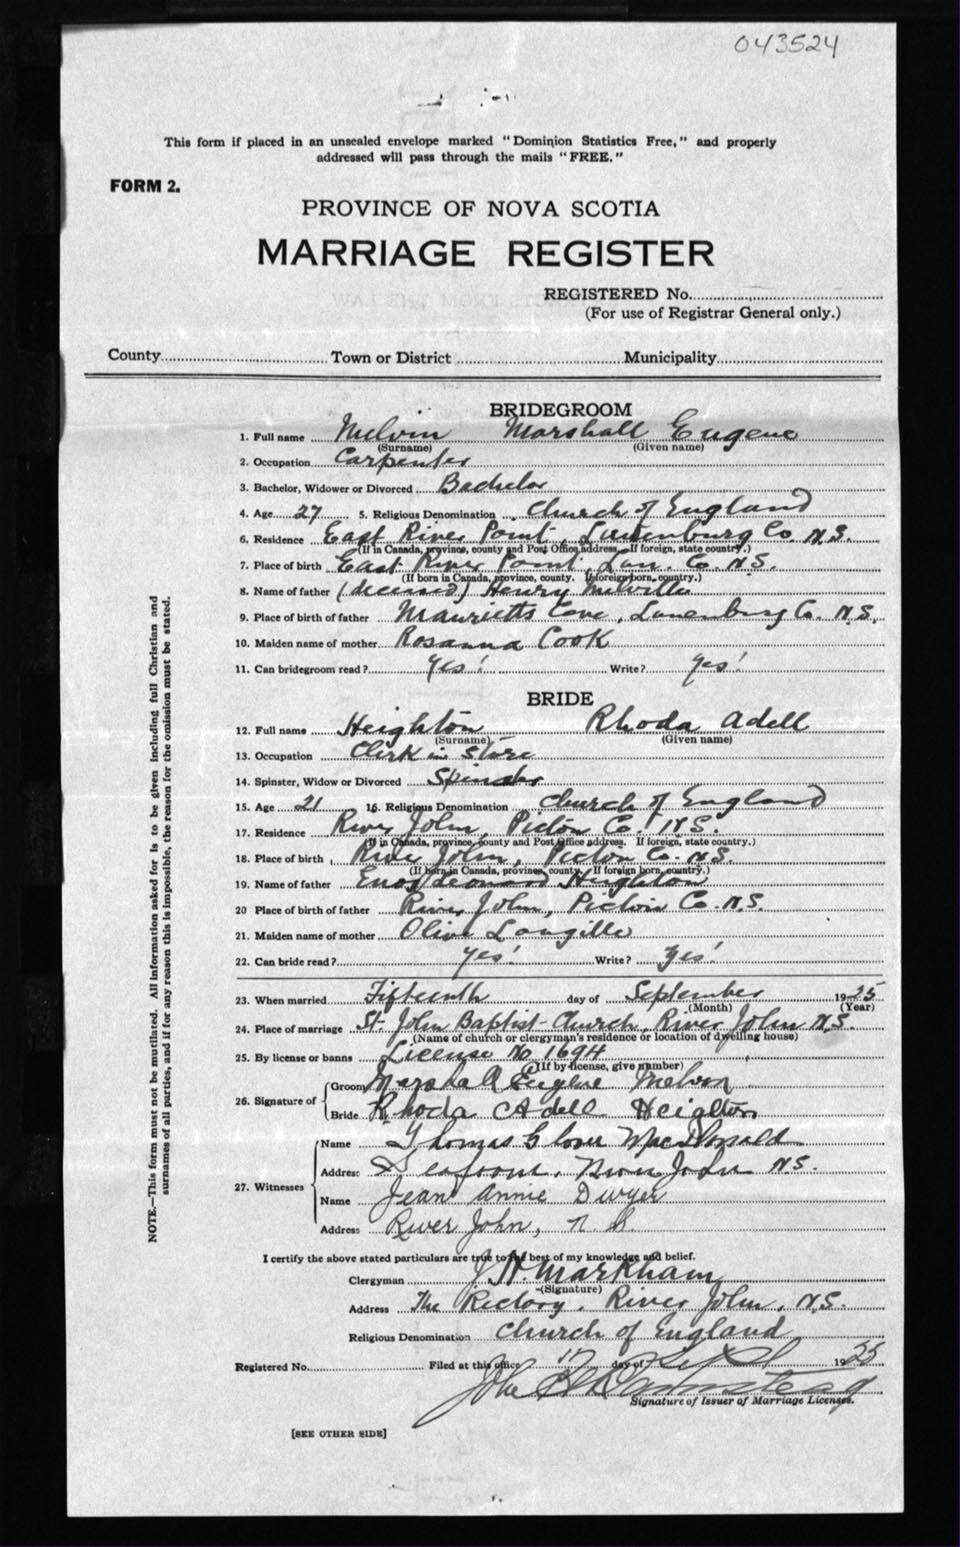 043524
This form if placed in an unsealed envelope marked "Dominion Statistics Free," and properly
addressed will pass through the mails "FREE."
FORM 2.
PROVINCE OF NOVA SCOTIA
MARRIAGE REGISTER
REGISTERED No.
(For use of Registrar General only.)
County Town or District Municipality
BRIDEGROOM
1. Full name Melvin Marshall Eugene
(Surname) (Given name)
2. Occupation Carpenter
3. Bachelor, Widower or Divorced Bachelor
4. Age 27 5. Religious Denomination Church of England
6. Residence East River Point, Lunenburg Co. N.S.
(If in Canada, province, county and Post Office address. If foreign, state country.)
7. Place of birth East River Point, Lun. Co. N.S.
(If born in Canada, province, county. If foreign born, country.)
8. Name of father (deceased) Henry Melville
9. Place of birth of father Cove, Lunenburg Co. N.S.
10. Maiden name of mother Rosanna Cook
11. Can bridegroom read? Yes! Write? Yes!
BRIDE
12. Full name Heighton Rhoda Adell
(Surname) (Given name)
13. Occupation Clerk in Store
14. Spinster, Widow or Divorced Spinster
15. Age 21 16. Religious Denomination Church of England
17. Residence River John, Pictou Co. N.S.
(If in Canada, province, county and Post Office address. If foreign, state country.)
18. Place of birth River John, Pictou Co. N.S.
(If born in Canada, province, county. If foreign born, country.)
19. Name of father Enos Leonard Heighton
20 Place of birth of father River John, Pictou Co. N.S.
21. Maiden name of mother Olive Langille
22. Can bride read? Yes! Write? Yes!
23. When married Fifteenth day of September 1925
(Month) (Year)
24. Place of marriage St. John Baptist Church, River John N.S.
(Name of church or clergyman's residence or location of dwelling house)
25. By license or banns License No 1694
(If by license, give number)
26. Signature of Groom Marshall Eugene Melvin
Bride Rhoda Adell Heighton
27. Witnesses
Name Thomas Glover MacDonald
Address Seafoam, River John N.S.
Name Jean Annie Dwyer
Address River John, N.S.
I certify the above stated particulars are true to the best of my knowledge and belief.
Clergyman J. H. Markham
(Signature)
Address The Rectory, River John, N.S.
Religious Denomination Church of England
Registered No. Filed at this office 17 day of Sept 1925
John
Signature of Issuer of Marriage Licenses.
[SEE OTHER SIDE]
NOTE.—This form must not be mutilated. All information asked for is to be given including full Christian and
surnames of all parties, and if for any reason this is impossible, the reason for the omission must be stated.